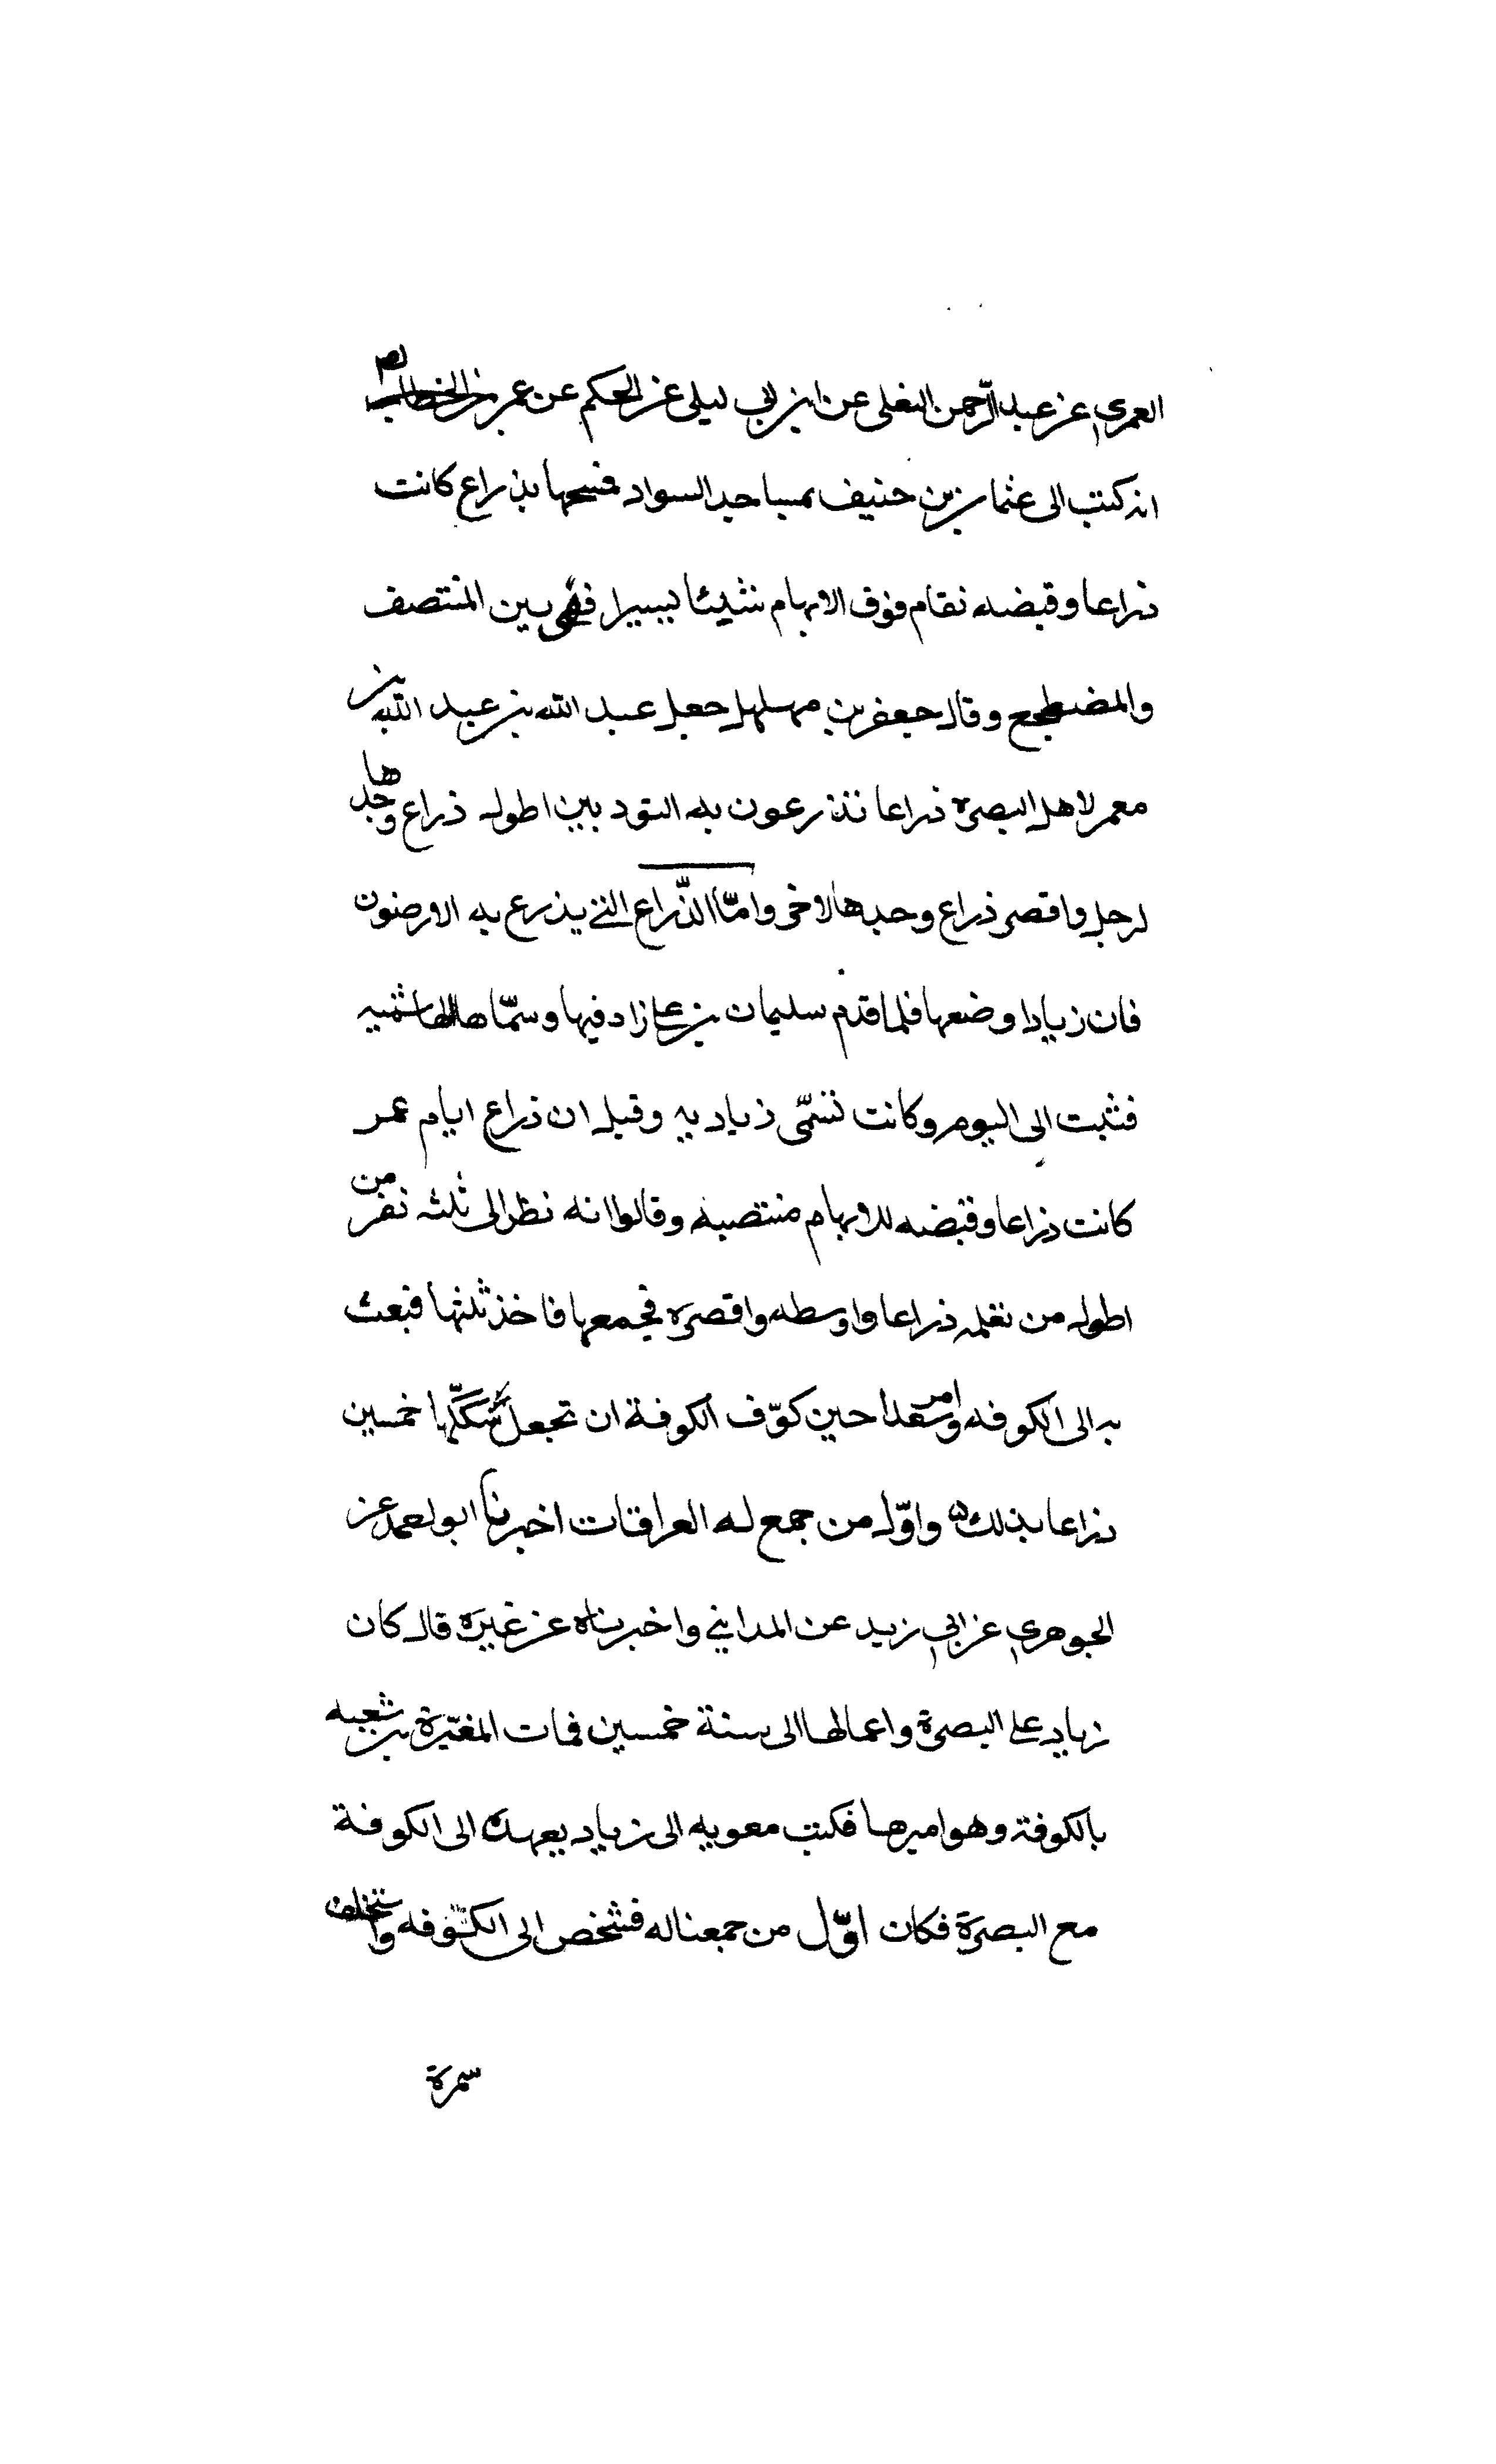 العمري عن عبد الرحمن التغلي عن ابن ابي ليلي عن الحكم عن عمر بن الخطاب رضه
انه كتب الى عثمان بن حنيف بمساحه السواد فمسحها بذراع كانت
ذراعا وقبضه نقام فوق الابهام شيئا يسيرا فهي بين المنتصف
والمضطجع وقال جعفر بن مهلهل جعل عبد الله بن عبيد الله بن
معمر لاهل البصرة ذراعا تذرعون به التود بين اطول ذراع وجدها
لرجل واقصر ذراع وجدها لاخر وامّا الذّراع التي يذرع به الارضون
فان زيادا وضعها فلما قدم سليمان بن علي زاد فيها وسمّاها الهاشميه
فثبت الى اليوم وكانت تسمّى زياديه وقيل ان ذراع ايام عمر
كانت ذراعا وقبضه للابهام منتصبه وقالوا انه نظر الى ثلثه نفر من
اطول من نعلمه ذراعا واوسطه واقصره فجمعها فاخذ ثلثها فبعث
به الى الكوفه وامر سعدا حين كوّف الكوفة ان تجعل سككّها خمسين
ذراعا بذلك ه واوّل من جمع له العراقات اخبرنا ابو احمد عن
الجوهري عن ابي زيد عن المدايني واخبرناه عن غيره قال كان
زياد على البصرة واعمالها الى سنة خمسين فمات المغيرة بن شعبه
بالكوفة وهو اميرها فكتب معويه الى زياد بعهده الى الكوفة
مع البصرة فكان اوّل من جمعتا له فشخص الى الكوفه واستخلف
سمرة